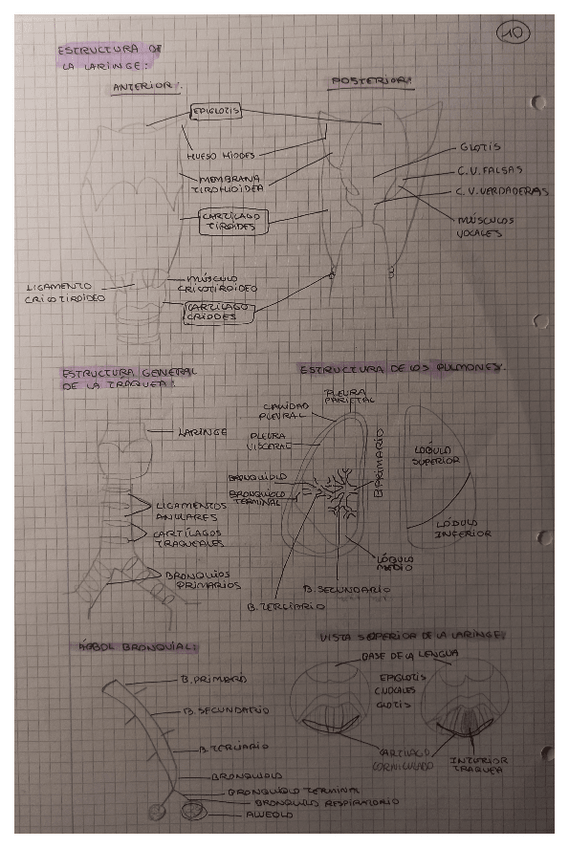 10
ESTRUCTURA DE
LA LARINGE:
ANTERIOR:
POSTERIOR:
EPIGLOTIS
HUESO HIODES
MEMBRANA
TIROHIOIDEA
CARTÍLAGO
TIROIDES
GLOTIS
C.V. FALSAS
C.V. VERDADERAS
MÚSCULOS
VOCALES
LIGAMENTO
CRICOTIROIDEO
MÚSCULO
CRICOTIROIDEO
CARTÍLAGO
CRIODES
ESTRUCTURA GENERAL
DE LA TRAQUEA:
LARINGE
LIGAMENTOS
ANULARES
CARTÍLAGOS
TRAQUEALES
BRONQUIOS
PRIMARIOS
ESTRUCTURA DE LOS PULMONES:
PLEURA
PARIETAL
CAVIDAD
PLEURAL
PLEURA
VISCERAL
BRONQUIOLO
BRONQUIOLO
TERMINAL
B. PRIMARIO
LÓBULO
SUPERIOR
LÓBULO
INFERIOR
LÓBULO
MEDIO
B. SECUNDARIO
B. TERCIARIO
ÁRBOL BRONQUIAL:
B. PRIMARIO
B. SECUNDARIO
B. TERCIARIO
BRONQUIOLO
BRONQUIOLO TERMINAL
BRONQUIOLO RESPIRATORIO
ALVEOLO
VISTA SUPERIOR DE LA LARINGE:
BASE DE LA LENGUA
EPIGLOTIS
C.VOCALES
GLOTIS
CARTÍLAGO
CORNICULADO
INTERIOR
TRAQUEA